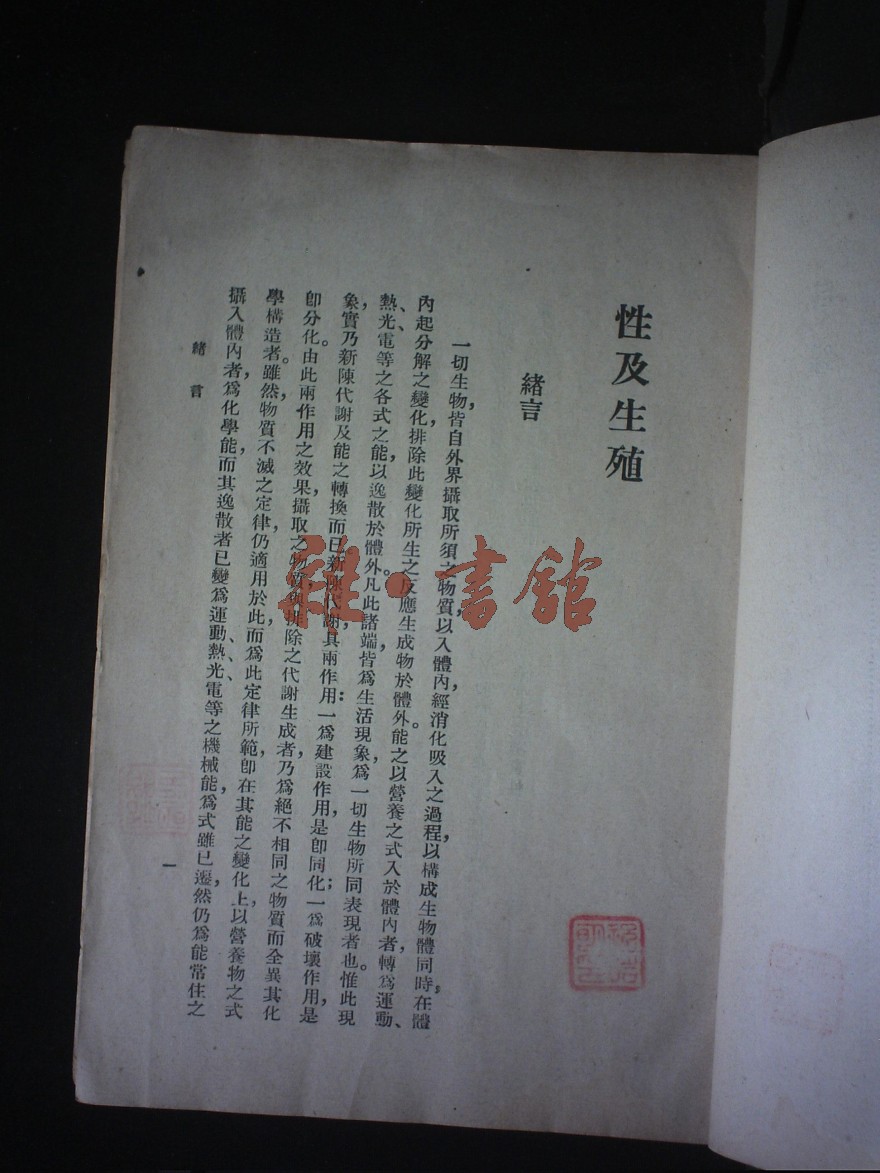 性及生殖
緒言
一切生物,皆自外界攝取所須之物質,以入體內,經消化吸入之過程,以構成生物體同時,在體
內起分解之變化,排除此變化所生之反應生成物於體外。能之以營養之式入於體內者,轉爲運動、
熱、光、電等之各式之能,以逸散於體外。凡此諸端,皆爲生活現象,爲一切生物所同表現者也。惟此現
象,實乃新陳代謝及能之轉換而已。新陳代謝具兩作用:一爲建設作用,是卽同化;一爲破壞作用,是
卽分化。由此兩作用之效果,攝取之物質與排除之代謝生成者,乃爲絕不相同之物質而全異其化
學構造者。雖然,物質不滅之定律,仍適用於此,而爲此定律所範,卽在其能之變化上,以營養物之式
攝入體內者,爲化學能,而其逸散者已變爲運動、熱、光、電等之機械能,爲式雖已遷,然仍爲能常住之
緒言
一
雜·書館